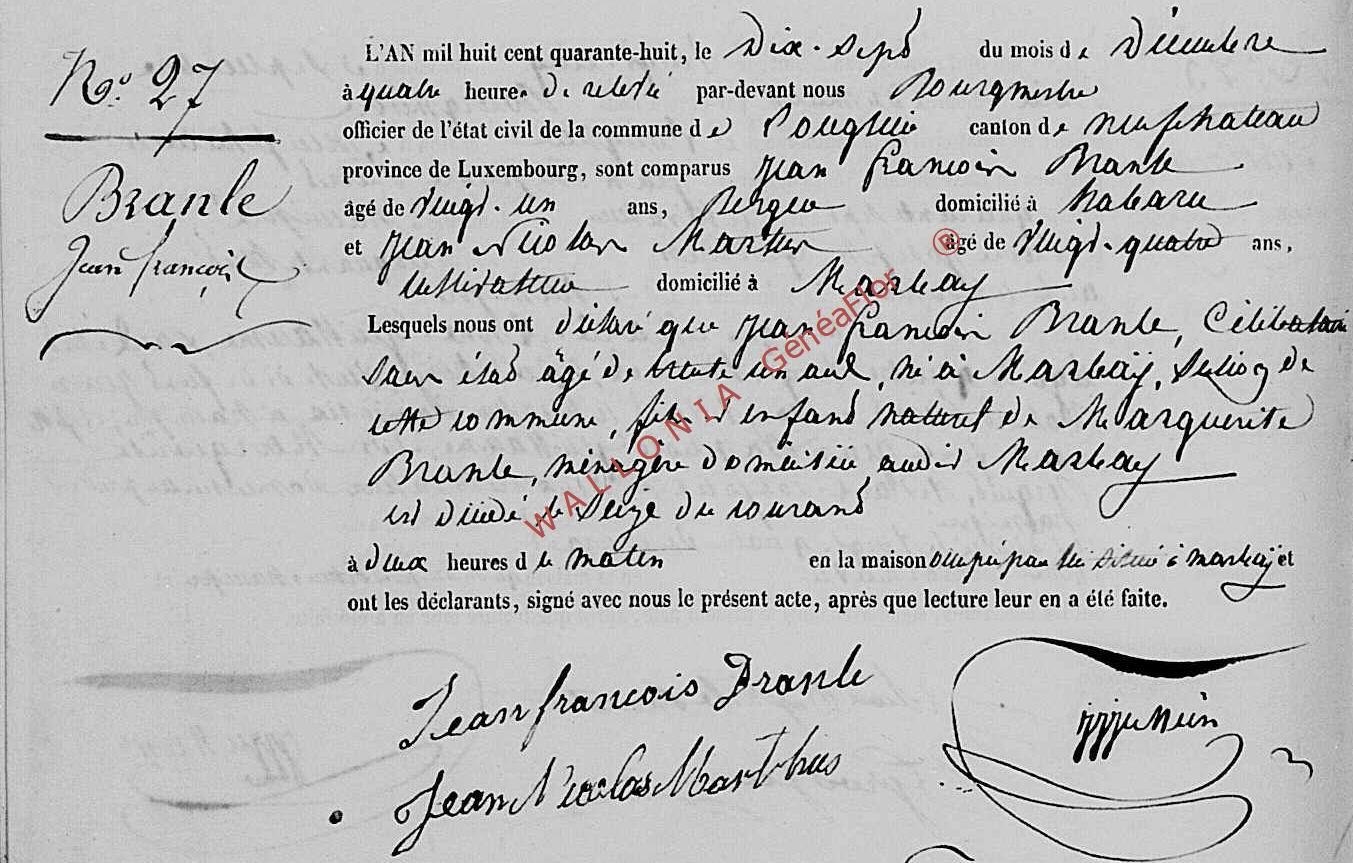 No. 27
Branle
Jean françois
L'AN mil huit cent quarante-huit, le Dix-Sept du mois de Décembre
à quatre heures de relevée par-devant nous Bourgmestre
officier de l'état civil de la commune de canton de neufchateau
province de Luxembourg, sont comparus jean francois Branle
âgé de vingt-un ans, Berger domicilié à habaru
et jean Nicolas Martus âgé de vingt-quatre ans,
cultivateur domicilié à Marbay
Lesquels nous ont déclaré que jean francois Branle, Célibataire
sans état âgé de trente un ans, né à Marbaÿ, Section de
cette commune, fils d'enfant naturel de Marguerite
Branle, ménagère domiciliée audit Marbay
est décédé le Seize du courant
à deux heures du matin en la maison occupée par lui à marbaÿ et
ont les déclarants, signé avec nous le présent acte, après que lecture leur en a été faite.
Jean francois Branle
Jean Nicolas Marthus
WALLONIA GénéaFlor ®